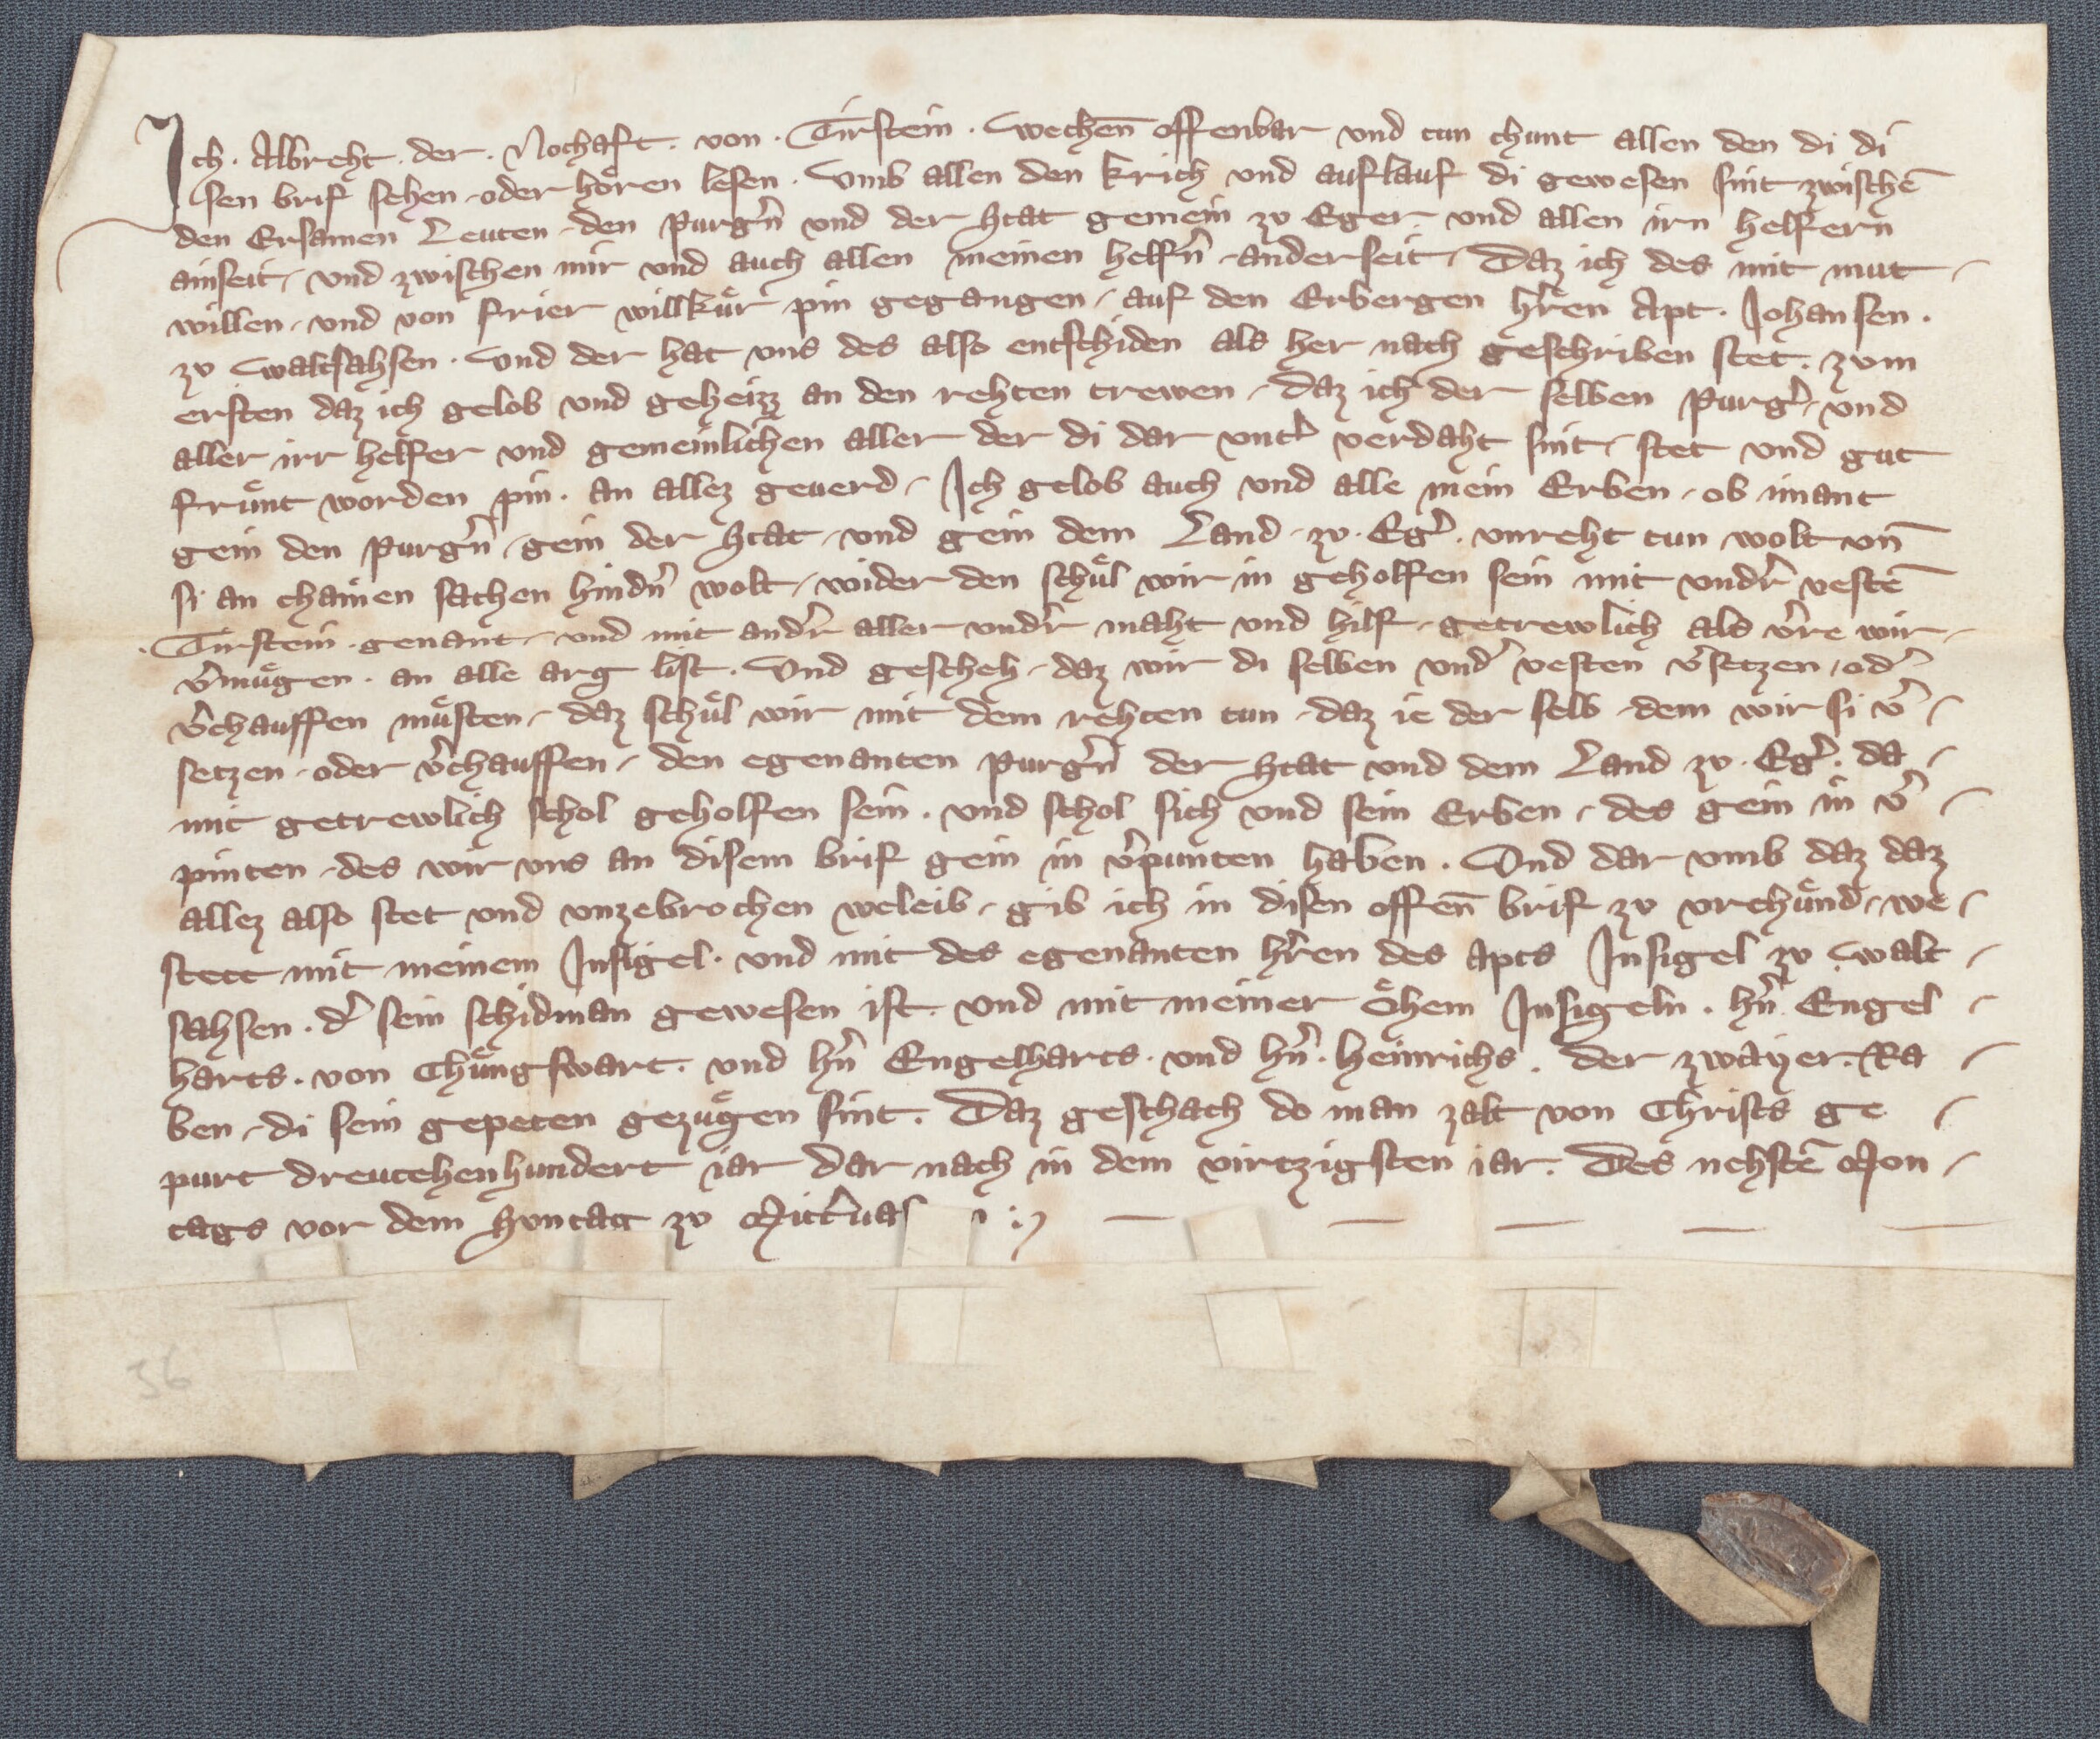 Ich . Albreht . der . Nothaft . von . Tirstein . wechen̄ offenbar und tun chunt allen den di di
sen brif sehen oder hoͤren lesen . Umb allen den krich und auflauf di gewesen sint zwischē
den Ersamen Leuten den Purgn̉ und der Stat gemein zv Eger und allen irn helfern
ainseit und zwischen mir und auch allen meinen helfn̉ anderseit Daz ich des mit mut
willen und von frier willkuͤr pin gegangen auf den Erbergen hr̉en Apt . Johansen .
zv Waltsahsen . Und der hat uns des also entschiden als her nach geschriben stet . zvm
ersten daz ich gelob und geheizz an den rehten trewen daz ich der selben Purgẻ und
aller irr helfer und gemeinlichen aller der di dar untẻ verdaht sint stet und gut
fruͤnt worden pin . an allez geuerd Ich gelob auch und alle mein Erben ob imant
gein den Purgn̉ gein der Stat und gein dem Land zv . Egẻ . unreht tun wolt un̄
si an chainen sachen hindn̉ wolt wider den schuͤl wir in geholfen sein mit undr̉ vestē
. Tirstein . genant und mit andr̉ aller undr̉ maht und hilf getrewlich als v̉re wir
v̉muͤgen . an alle arg list . Und gescheh daz wir di selben undẻ vesten v̉setzen odẻ
v̉chauffen muͤsten daz schuͤl wir mit dem rehten tun daz ie der selb dem wir si v̉
setzen oder v̉chauffen den egenanten Purgn̉ der Stat und dem Land zv . Egẻ . da
mit getrewlich schol geholfen sein . und schol sich und sein Erben des gein in v̉
pinten des wir uns an disem brif gein in v̉punten haben . Und dar umb daz daz
allez also stet und unzebrochen weleib gib ich in disen offen̄ brif zv urchuͤnd we
stett mit meinem Insigel . und mit des egenanten hr̉en des Apts Insigel zv Walt
sahsen . dẻ sein schidman gewesen ist und mit meiner oͤhem Insigeln . hn̉ Engel
harts . von Chuͤngswart . und hn̉ Engelharts . und hn̉ . Heinrichs . der zwayer . Ra
ben di sein gepeten gezuͤgen sint . Daz geschach do man zalt von Christs ge
purt dreutzehenhundert iar dar nach in dem virtzigsten iar . Des nehstē Mon
tags vor dem Suntag zv Mittẻuas
36